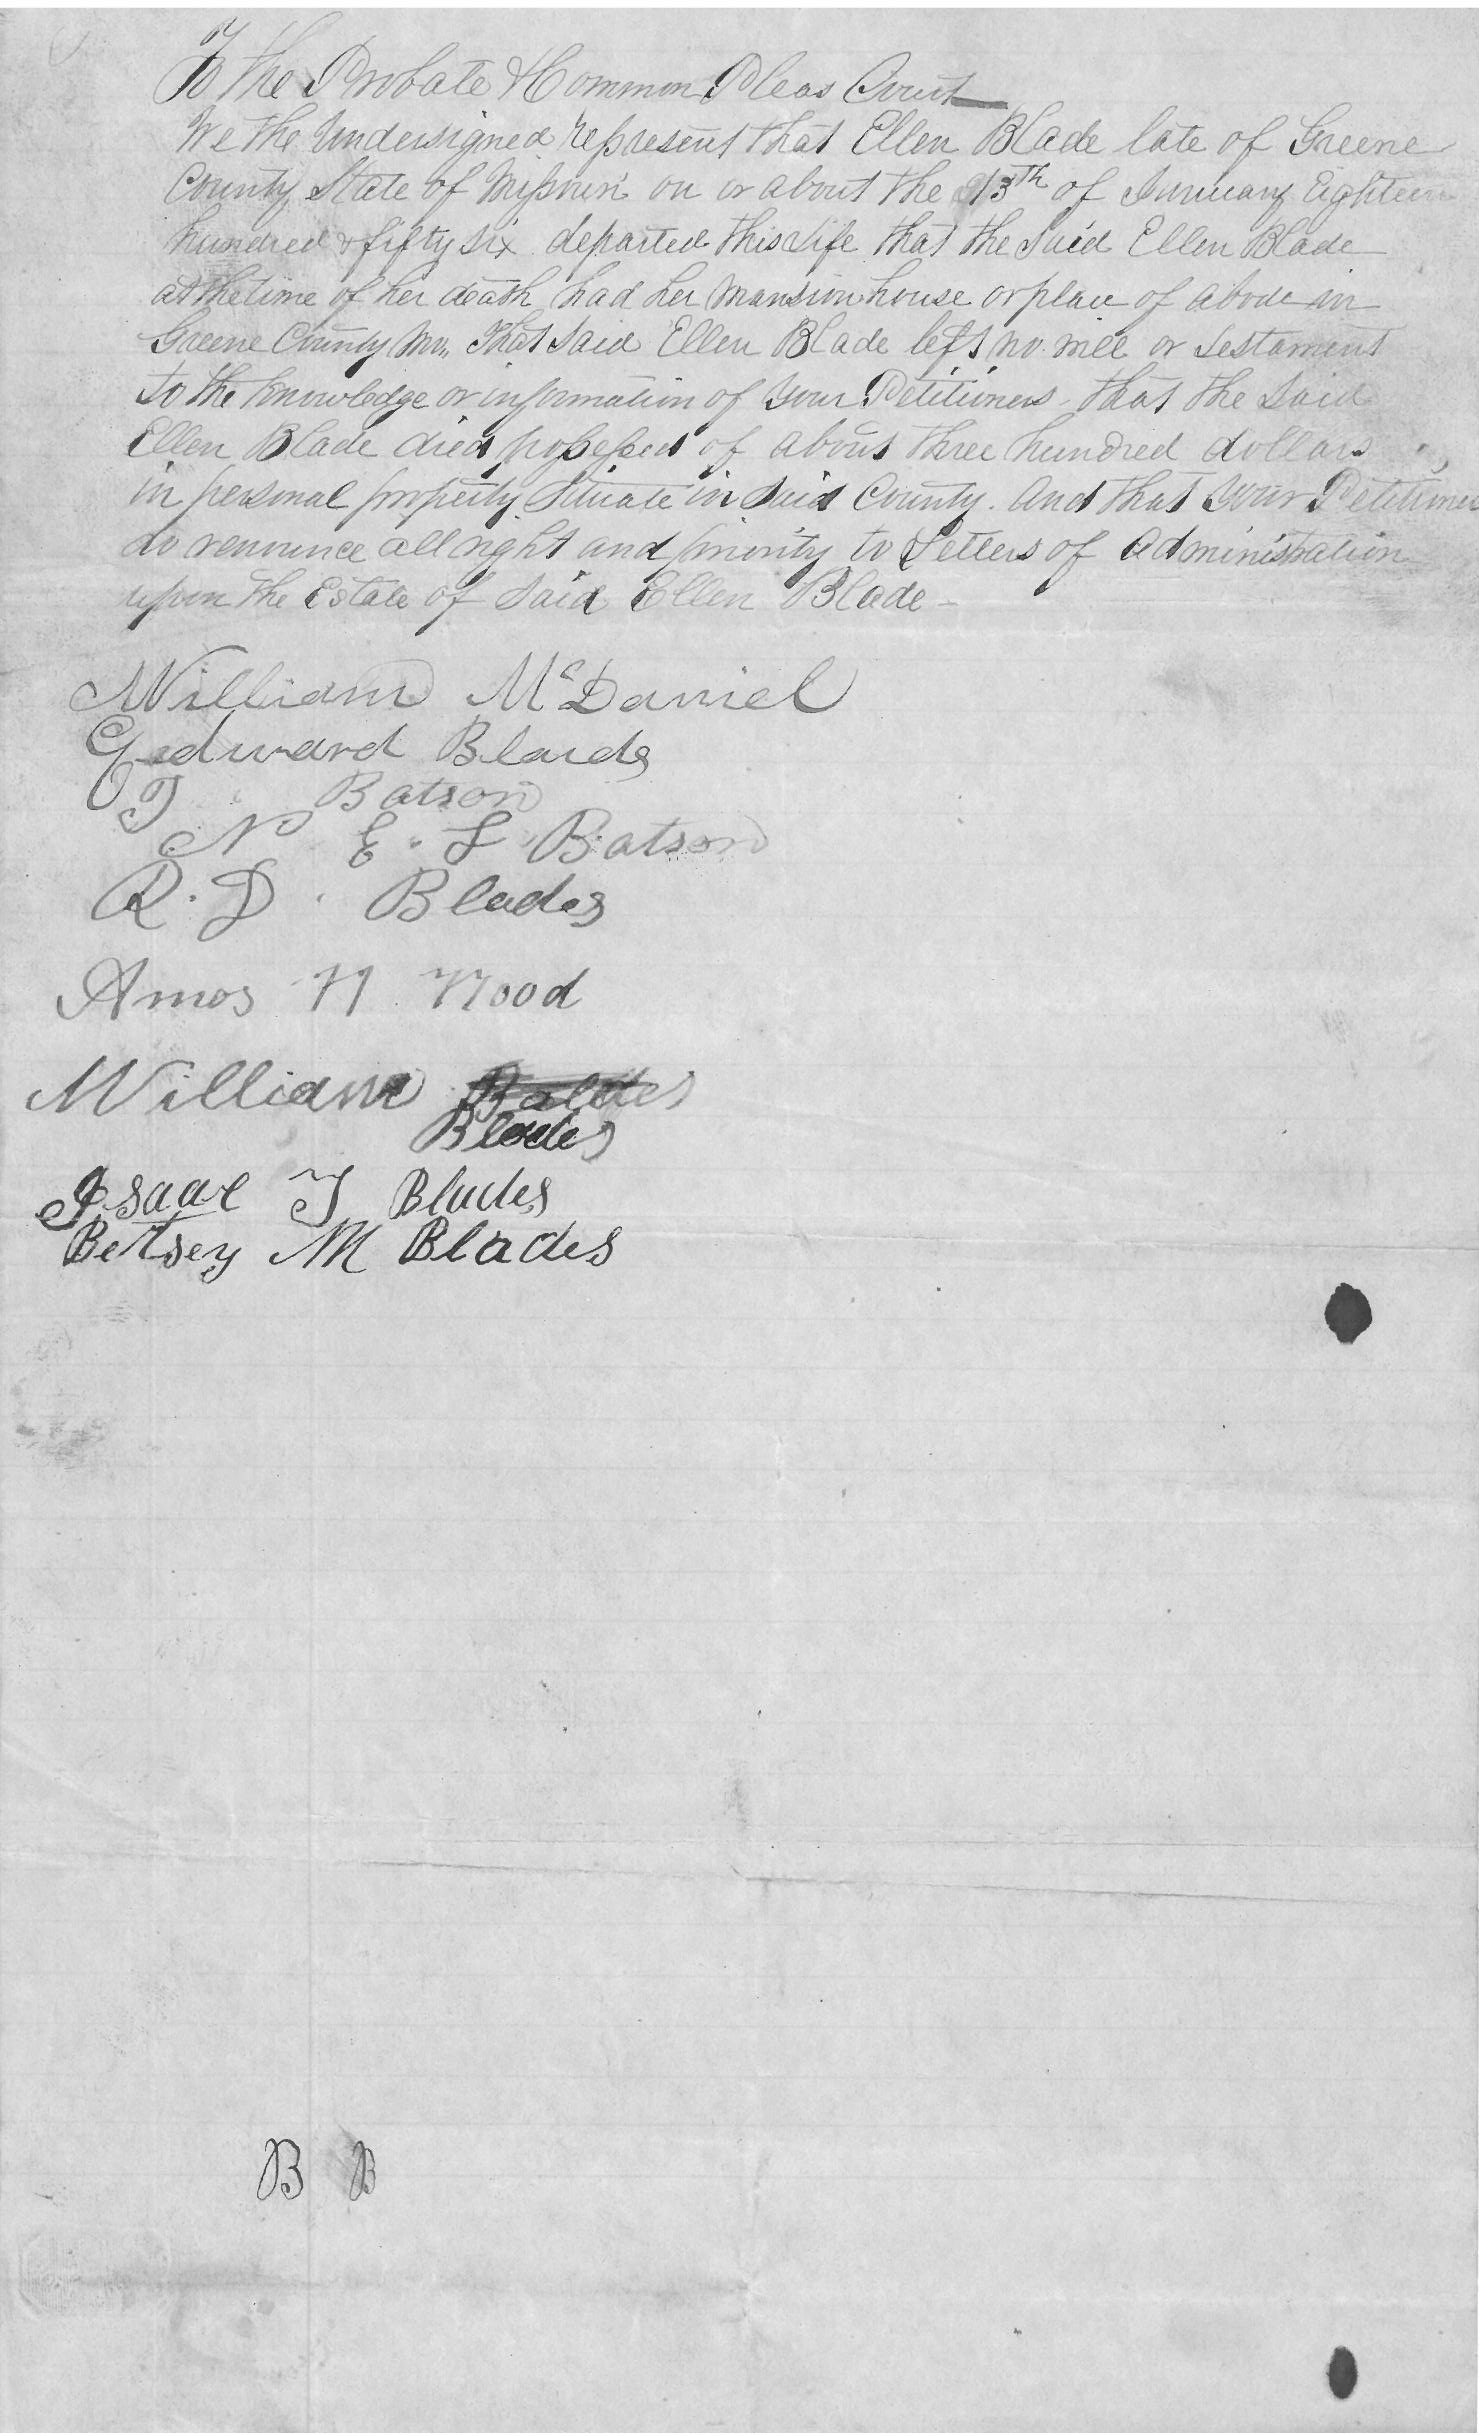 To the Probate & Common Pleas Court
We the Undersigned represent that Ellen Blade late of Greene
County State of Missouri on or about the 13th of January Eighteen
hundred & fifty six departed this Life that the Said Ellen Blade
at the time of her death had her Mansion house or place of abode in
Greene County Mo. That Said Ellen Blade left no will or testament
to the knowledge or information of your Petitioners - that the Said
Ellen Blade died possessed of about three hundred dollars
in personal property Situate in Said County. And that your Petitioner
do renounce all right and priority to Letters of Administration
upon the Estate of Said Ellen Blade -
William McDaniel
Edward Blaids
T Batson
N E. L Batson
R. D. Blades
Amos N Wood
William Baldes
Blades
Isaac T Blades
Betsey M Blades
B B